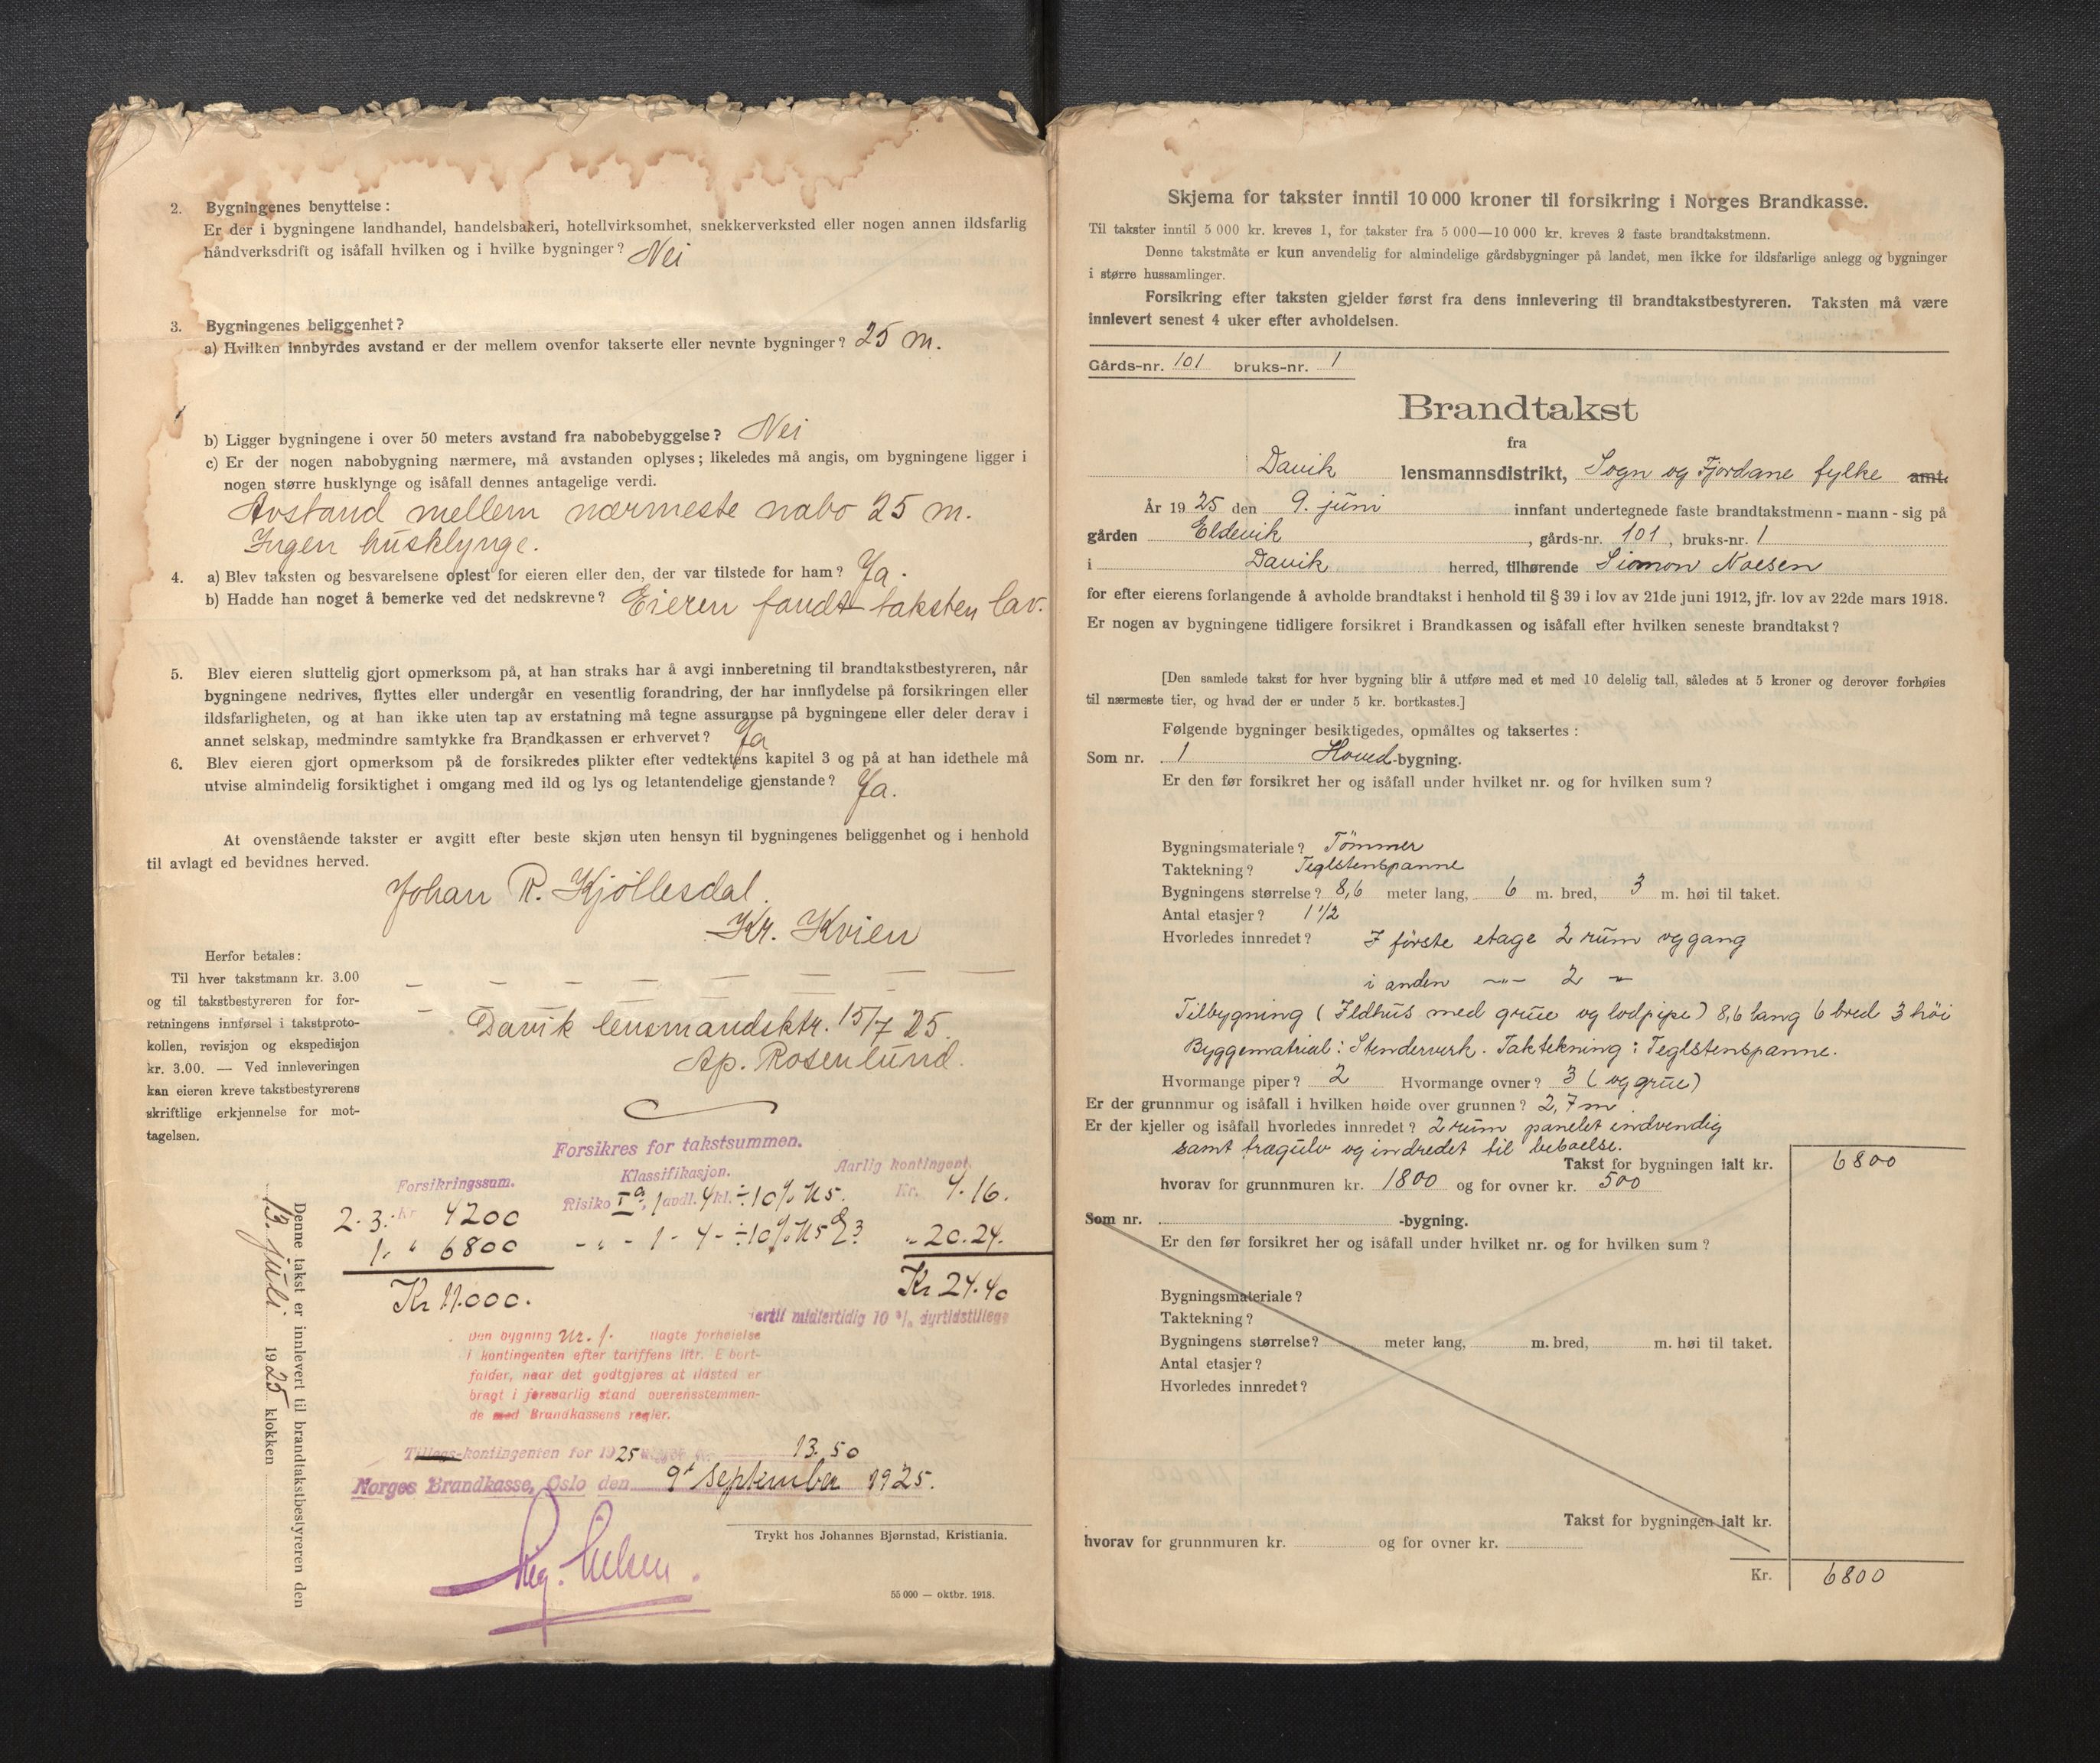 2. Bygningenes benyttelse:
Er der i bygningene landhandel, handelsbakeri, hotellvirksomhet, snekkerverksted eller nogen annen ildsfarlig
håndverksdrift og isåfall hvilken og i hvilke bygninger? Nei
3. Bygningenes beliggenhet?
a) Hvilken innbyrdes avstand er der mellem ovenfor takserte eller nevnte bygninger? 25 m.
b) Ligger bygningene i over 50 meters avstand fra nabobebyggelse? Nei
c) Er der nogen nabobygning nærmere, må avstanden oplyses; likeledes må angis, om bygningene ligger i
nogen større husklynge og isåfall dennes antagelige verdi.
Avstand mellem nærmeste nabo 25 m.
Ingen husklynge.
4. a) Blev taksten og besvarelsene oplest for eieren eller den, der var tilstede for ham? Ja.
b) Hadde han noget å bemerke ved det nedskrevne? Eieren fandt taksten lav.
5. Blev eieren sluttelig gjort opmerksom på, at han straks har å avgi innberetning til brandtakstbestyreren, når
bygningene nedrives, flyttes eller undergår en vesentlig forandring, der har innflydelse på forsikringen eller
ildsfarligheten, og at han ikke uten tap av erstatning må tegne assuranse på bygningene eller deler derav i
annet selskap, medmindre samtykke fra Brandkassen er erhvervet? Ja
6. Blev eieren gjort opmerksom på de forsikredes plikter efter vedtektens kapitel 3 og på at han idethele må
utvise almindelig forsiktighet i omgang med ild og lys og letantendelige gjenstande? Ja.
At ovenstående takster er avgitt efter beste skjøn uten hensyn til bygningenes beliggenhet og i henhold
til avlagt ed bevidnes herved.
Johan R. Kjöllesdal.
Kr. Kvien
Herfor betales:
Til hver takstmann kr. 3.00
og til takstbestyreren for for-
retningens innførsel i takstproto-
kollen, revisjon og ekspedisjon
kr. 3.00. — Ved innleveringen
kan eieren kreve takstbestyrerens
skriftlige erkjennelse for mot-
tagelsen.
Davik lensmandsktr. 15/7 25.
Ap. Rosenlund.
Denne takst er innlevert til brandtakstbestyreren den
13. juli 1925 klokken
Forsikres for takstsummen.
Forsikringssum. Klassifikasjon. Aarlig kontingent.
2-3. Kr 4200 Risiko Ia, 1 avdl. 4 kl. ÷ 10% N5. Kr. 4.16.
1. " 6800 - " - 1 - 4 - ÷ 10% N5 E3 " 20.24.
Kr 11.000. Kr 24.40
ertil midlertidig 10 % dyrtidstillegg
Den bygning Nr. 1. ilagte forhøielse
i kontingenten efter tariffens litr. E bort-
falder, naar det godtgjøres at ildsted er
bragt i forsvarlig stand overensstemmen-
de med Brandkassens regler.
Tillegs-kontingenten for 1925 13.50
Norges Brandkasse, Oslo den 9d september 1925.
Trykt hos Johannes Bjørnstad, Kristiania.
55 000 — oktbr. 1918.
Skjema for takster inntil 10 000 kroner til forsikring i Norges Brandkasse.
Til takster inntil 5 000 kr. kreves 1, for takster fra 5 000—10 000 kr. kreves 2 faste brandtakstmenn.
Denne takstmåte er kun anvendelig for almindelige gårdsbygninger på landet, men ikke for ildsfarlige anlegg og bygninger
i større hussamlinger.
Forsikring efter taksten gjelder først fra dens innlevering til brandtakstbestyreren. Taksten må være
innlevert senest 4 uker efter avholdelsen.
Gårds-nr. 101 bruks-nr. 1
Brandtakst
fra
Davik lensmannsdistrikt, Sogn og Fjordane fylke amt.
År 1925 den 9. juni innfant undertegnede faste brandtakstmenn - mann - sig på
gården Eldevik, gårds-nr. 101, bruks-nr. 1
i Davik herred, tilhørende Simon Noesen
for efter eierens forlangende å avholde brandtakst i henhold til § 39 i lov av 21de juni 1912, jfr. lov av 22de mars 1918.
Er nogen av bygningene tidligere forsikret i Brandkassen og isåfall efter hvilken seneste brandtakst?
[Den samlede takst for hver bygning blir å utføre med et med 10 delelig tall, således at 5 kroner og derover forhøies
til nærmeste tier, og hvad der er under 5 kr. bortkastes.]
Følgende bygninger besiktigedes, opmåltes og taksertes:
Som nr. 1 Hoved-bygning.
Er den før forsikret her og isåfall under hvilket nr. og for hvilken sum?
Bygningsmateriale? Tömmer
Taktekning? Teglstenspanne
Bygningens størrelse? 8,6 meter lang, 6 m. bred, 3 m. høi til taket.
Antal etasjer? 1 1/2
Hvorledes innredet? I förste etage 2 rum og gang
i anden -"- 2 "
Tilbygning (Ildhus med grue og lodpipe) 8,6 lang 6 bred 3 höi
Byggematrial: Stenderverk. Taktekning: Teglstenspanne.
Hvormange piper? 2 Hvormange ovner? 3 (og grue)
Er der grunnmur og isåfall i hvilken høide over grunnen? 2,7 m.
Er der kjeller og isåfall hvorledes innredet? 2 rum panelet indvendig
samt trægulv og indredet til beboelse.
Takst for bygningen ialt kr. 6800
hvorav for grunnmuren kr. 1800 og for ovner kr. 500
Som nr. -bygning.
Er den før forsikret her og isåfall under hvilket nr. og for hvilken sum?
Bygningsmateriale?
Taktekning?
Bygningens størrelse? meter lang, m. bred, m. høi til taket.
Antal etasjer?
Hvorledes innredet?
Takst for bygningen ialt kr.
hvorav for grunnmuren kr. og for ovner kr.
Kr. 6800